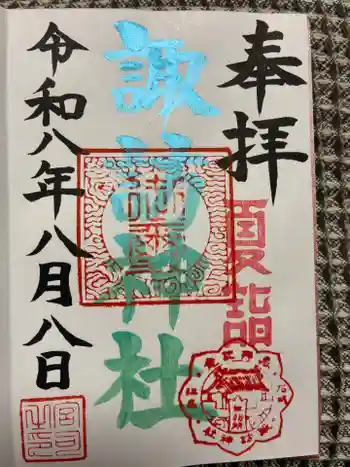 奉拝
夏詣
諏訪神社
令和八年八月八日